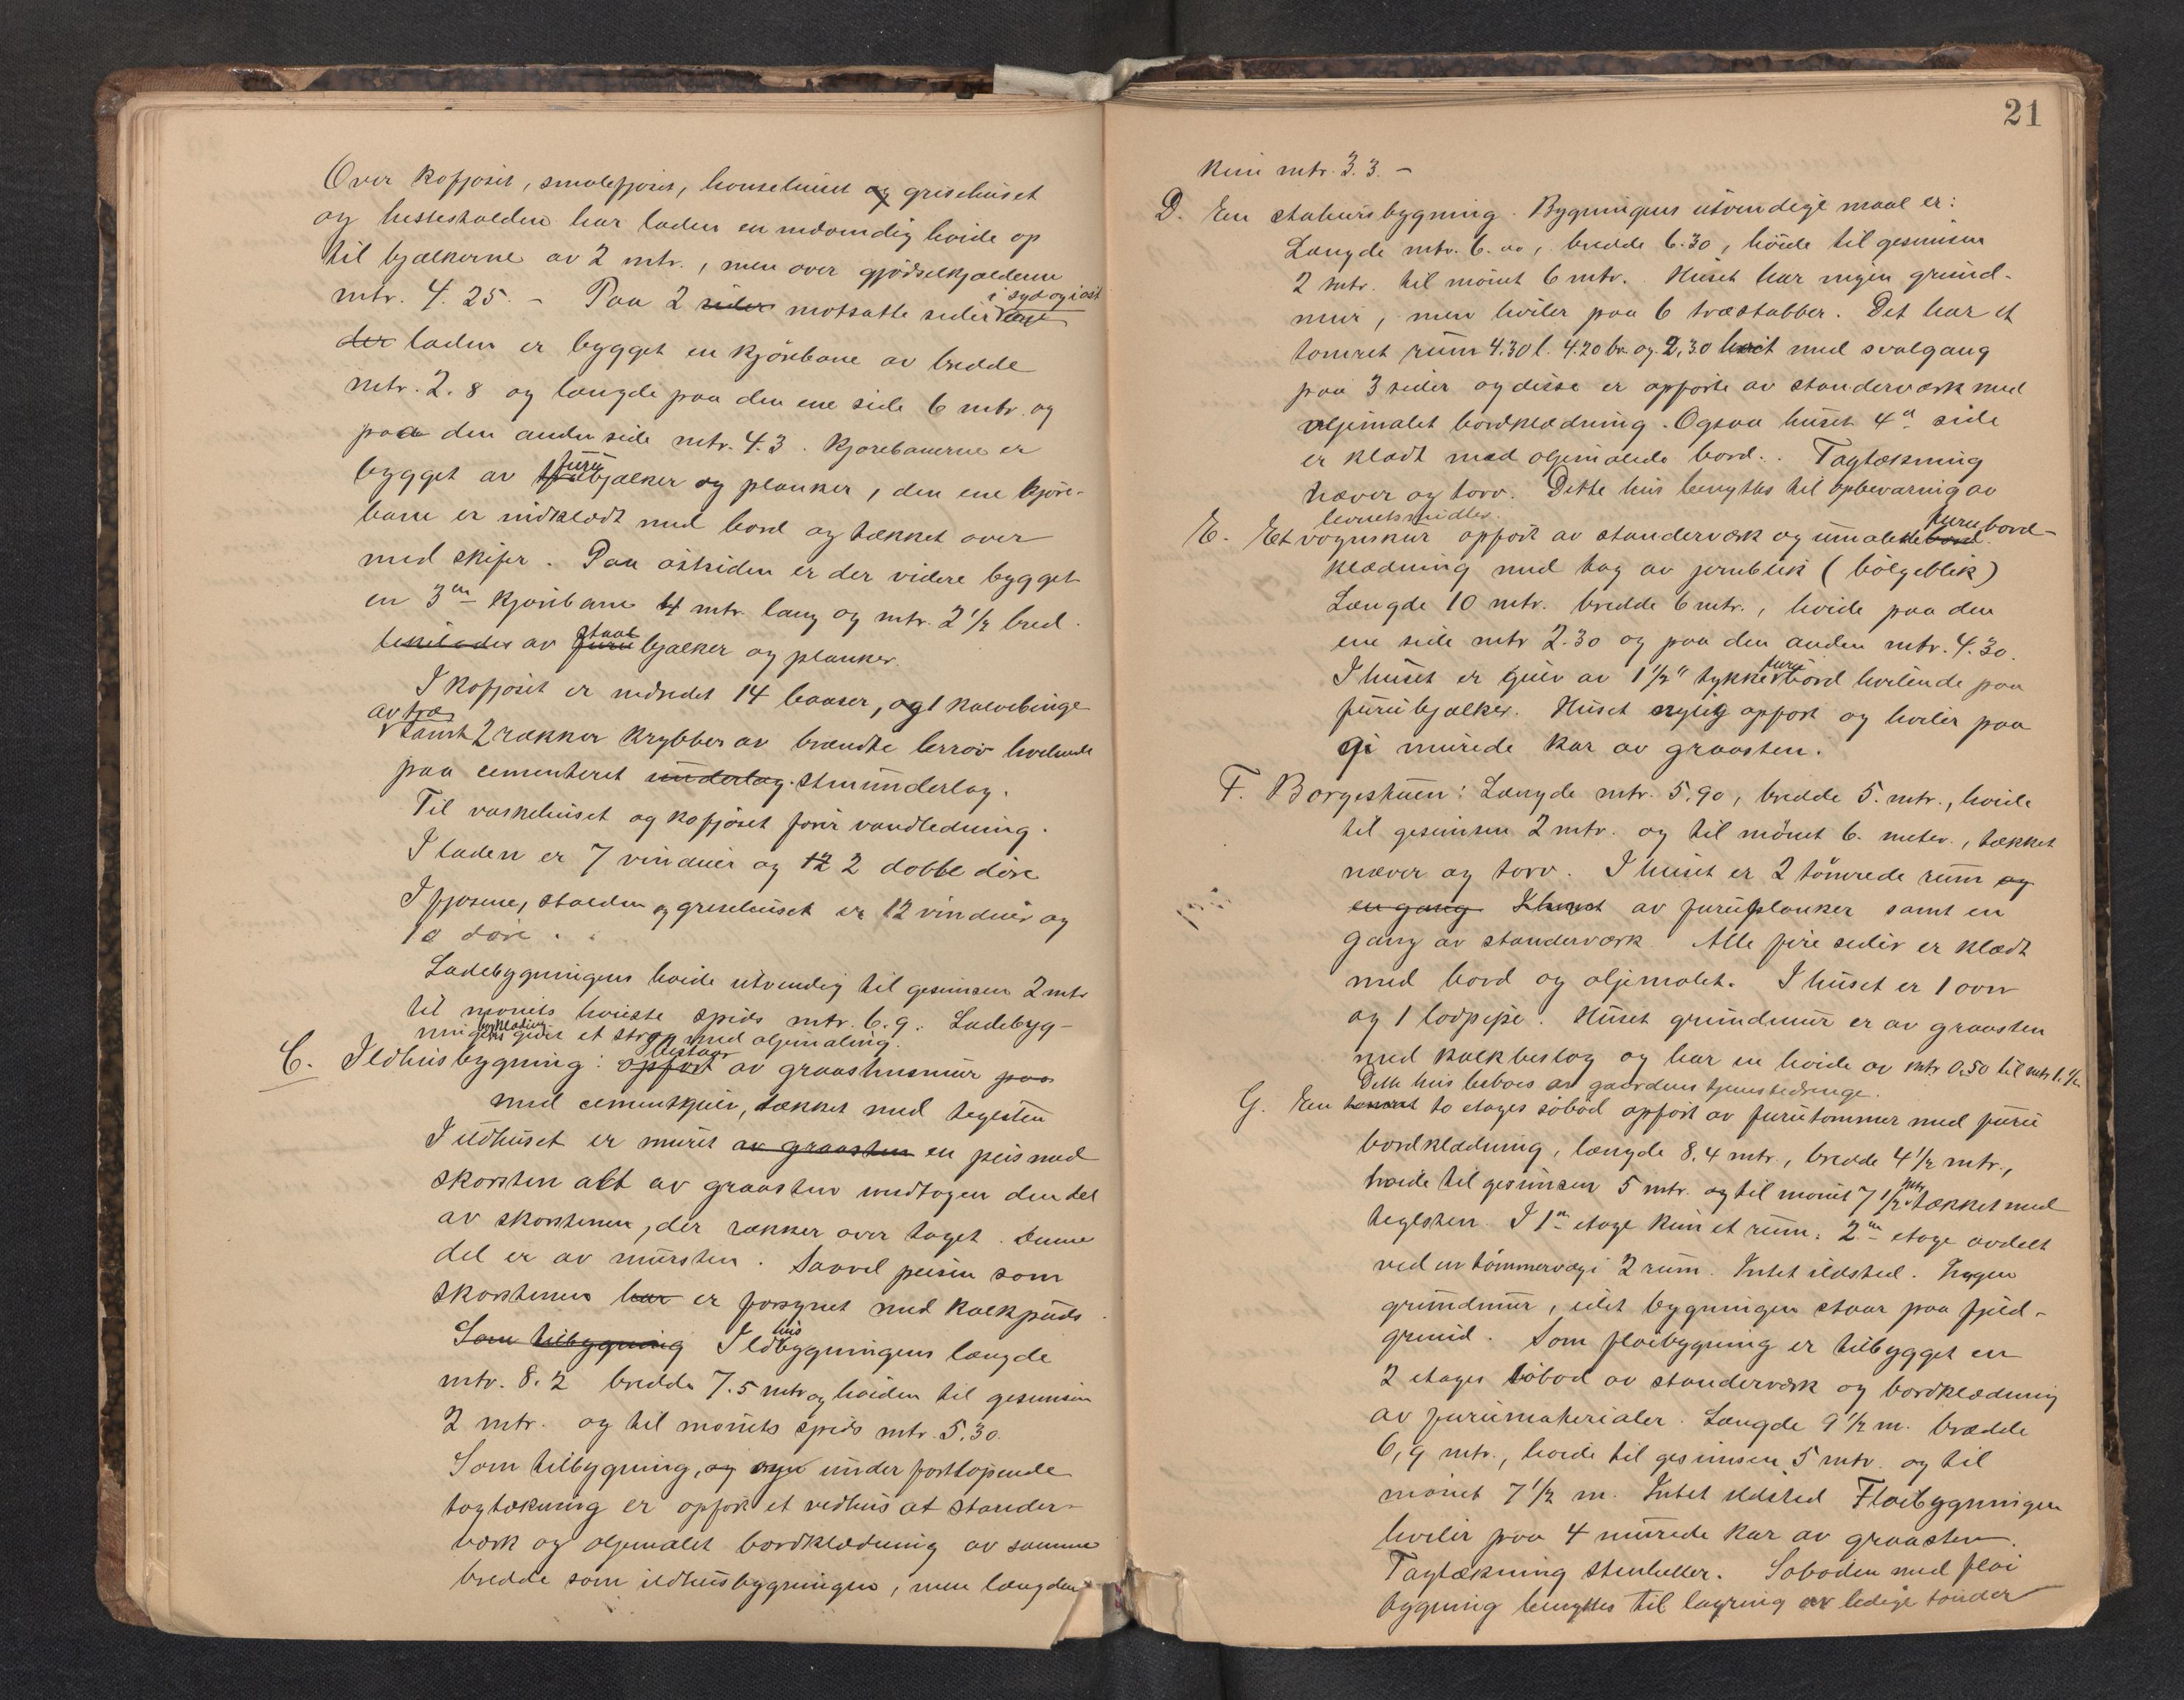 Over kofjøset, smalefjøset, hønsehuset og grisehuset
og hestestalden har laden en indvendig høide op
til bjælkerne av 2 mtr., men over gjødselkjælderen
mtr. 4.25. - Paa 2 sider motsatte sider i syd og i ost
der laden er bygget en kjørebane av bredde
mtr. 2.8 og længde paa den ene side 6 mtr. og
paa den anden side mtr. 4.3. Kjørebanerne er
bygget av furubjælker og planker, den ene kjøre-
bane er indklædt med bord og tækket over
med skifer. Paa østsiden er der videre bygget
en 3en kjørebane 4 mtr. lang og mtr. 2 1/2 bred.
av furu staal bjælker og planker.
I kofjøset er indredet 14 baaser, og 1 kalvebinge
av træ
samt 2 rækker krybber av brændte lerrør hvilende
paa cementeret underlag. stenunderlag.
Til vaskehuset og kofjøset fører vandledning.
I laden er 7 vinduer og 12 2 doble døre
I fjøsene, stalden og grisehuset er 12 vinduer og
10 døre.
Ladebygningens høide utvendig til gesimsen 2 mtr
til mønets høieste spids mtr. 6.9. Ladebyg-
ningens bordklædning givet et strøg med oljemaling.
C. Ildhusbygning: opført bestaar av graastensmur paa
med cementgulv, tækket med teglsten
I ildhuset er muret av graasten en peis med
skorsten alt av graasten undtagen den del
av skorstenen, der rækker over taget. Denne
del er av mursten. Saavel peisen som
skorstenen har er forsynet med kalkpuds.
Som tilbygning Ildhusbygningens længde
mtr. 8.2 bredde 7.5 mtr og høiden til gesimsen
2 mtr. og til mønets spids mtr. 5.30.
Som tilbygning, og under fortløpende
tagtækning er opført et vedhus at stander-
værk og oljemalet bordklædning av samme
bredde som ildhusbygningen, men længden
21
kun mtr. 3.3. -
D. En stabursbygning. Bygningens utvendige maal er:
Længde mtr. 6.00, bredde 6.30, høide til gesimsen
2 mtr. til mønet 6 mtr. Huset har ingen grund-
mur, men hviler paa 6 træstabber. Det har et
tømret rum 4.30 l. 4.20 br. og 2,30 høit med svalgang
paa 3 sider og disse er opførte av standerværk med
oljemalet bordklædning. Ogsaa husets 4de side
er klædt med oljemalede bord. Tagtækning
næver og torv. Dette hus benyttes til opbevaring av
levnetsmidler.
E. Et vognskur opført av standerværk og umalede bord furubord-
klædning med tag av jernblik (bølgeblik)
Længde 10 mtr. bredde 6 mtr., høide paa den
ene side mtr 2.30 og paa den anden mtr. 4.30.
I huset er gulv av 1 1/2" tykke furubord hvilende paa
furubjælker. Huset nylig opført og hviler paa
9 murede kar av graasten.
F. Borgestuen: Længde mtr. 5.90, bredde 5. mtr., høide
til gesimsen 2 mtr. og til mønet 6. meter., tækket
næver og torv. I huset er 2 tømrede rum og
en gang av furuplanker samt en
gang av standerværk. Alle fire sider er klædt
med bord og oljemalet. I huset er 1 ovn
og 1 lodpipe. Huset grundmur er av graasten
med kalkbeslag og har en høide av mtr 0.50 til mtr 1.1/2.
Dette hus beboes av gaardens tjenestedrenge.
G. En tømret to etages søbod opført av furutømmer med furu
bordklædning, længde 8.4 mtr., bredde 4 1/2 mtr.,
høide til gesimsen 5 mtr. og til mønet 7 1/2 mtr. tækket med
teglsten. I 1ste etage kun et rum. 2den etage avdelt
ved en tømmervæg i 2 rum. Intet ildsted. Ingen
grundmur, idet bygningen staar paa fjeld-
grund. Som fløibygning er tilbygget en
2 etages søbod av standerværk og bordklædning
av furumaterialer. Længde 9 1/2 m. bredde
6,9 mtr., høide til gesimsen 5 mtr. og til
mønet 7 1/2 m. Intet ildsted Fløibygningen
hviler paa 4 murede kar av graasten.
Tagtækning stenheller. Søboden med fløi
bygning benyttes til lagring av ledige tønder